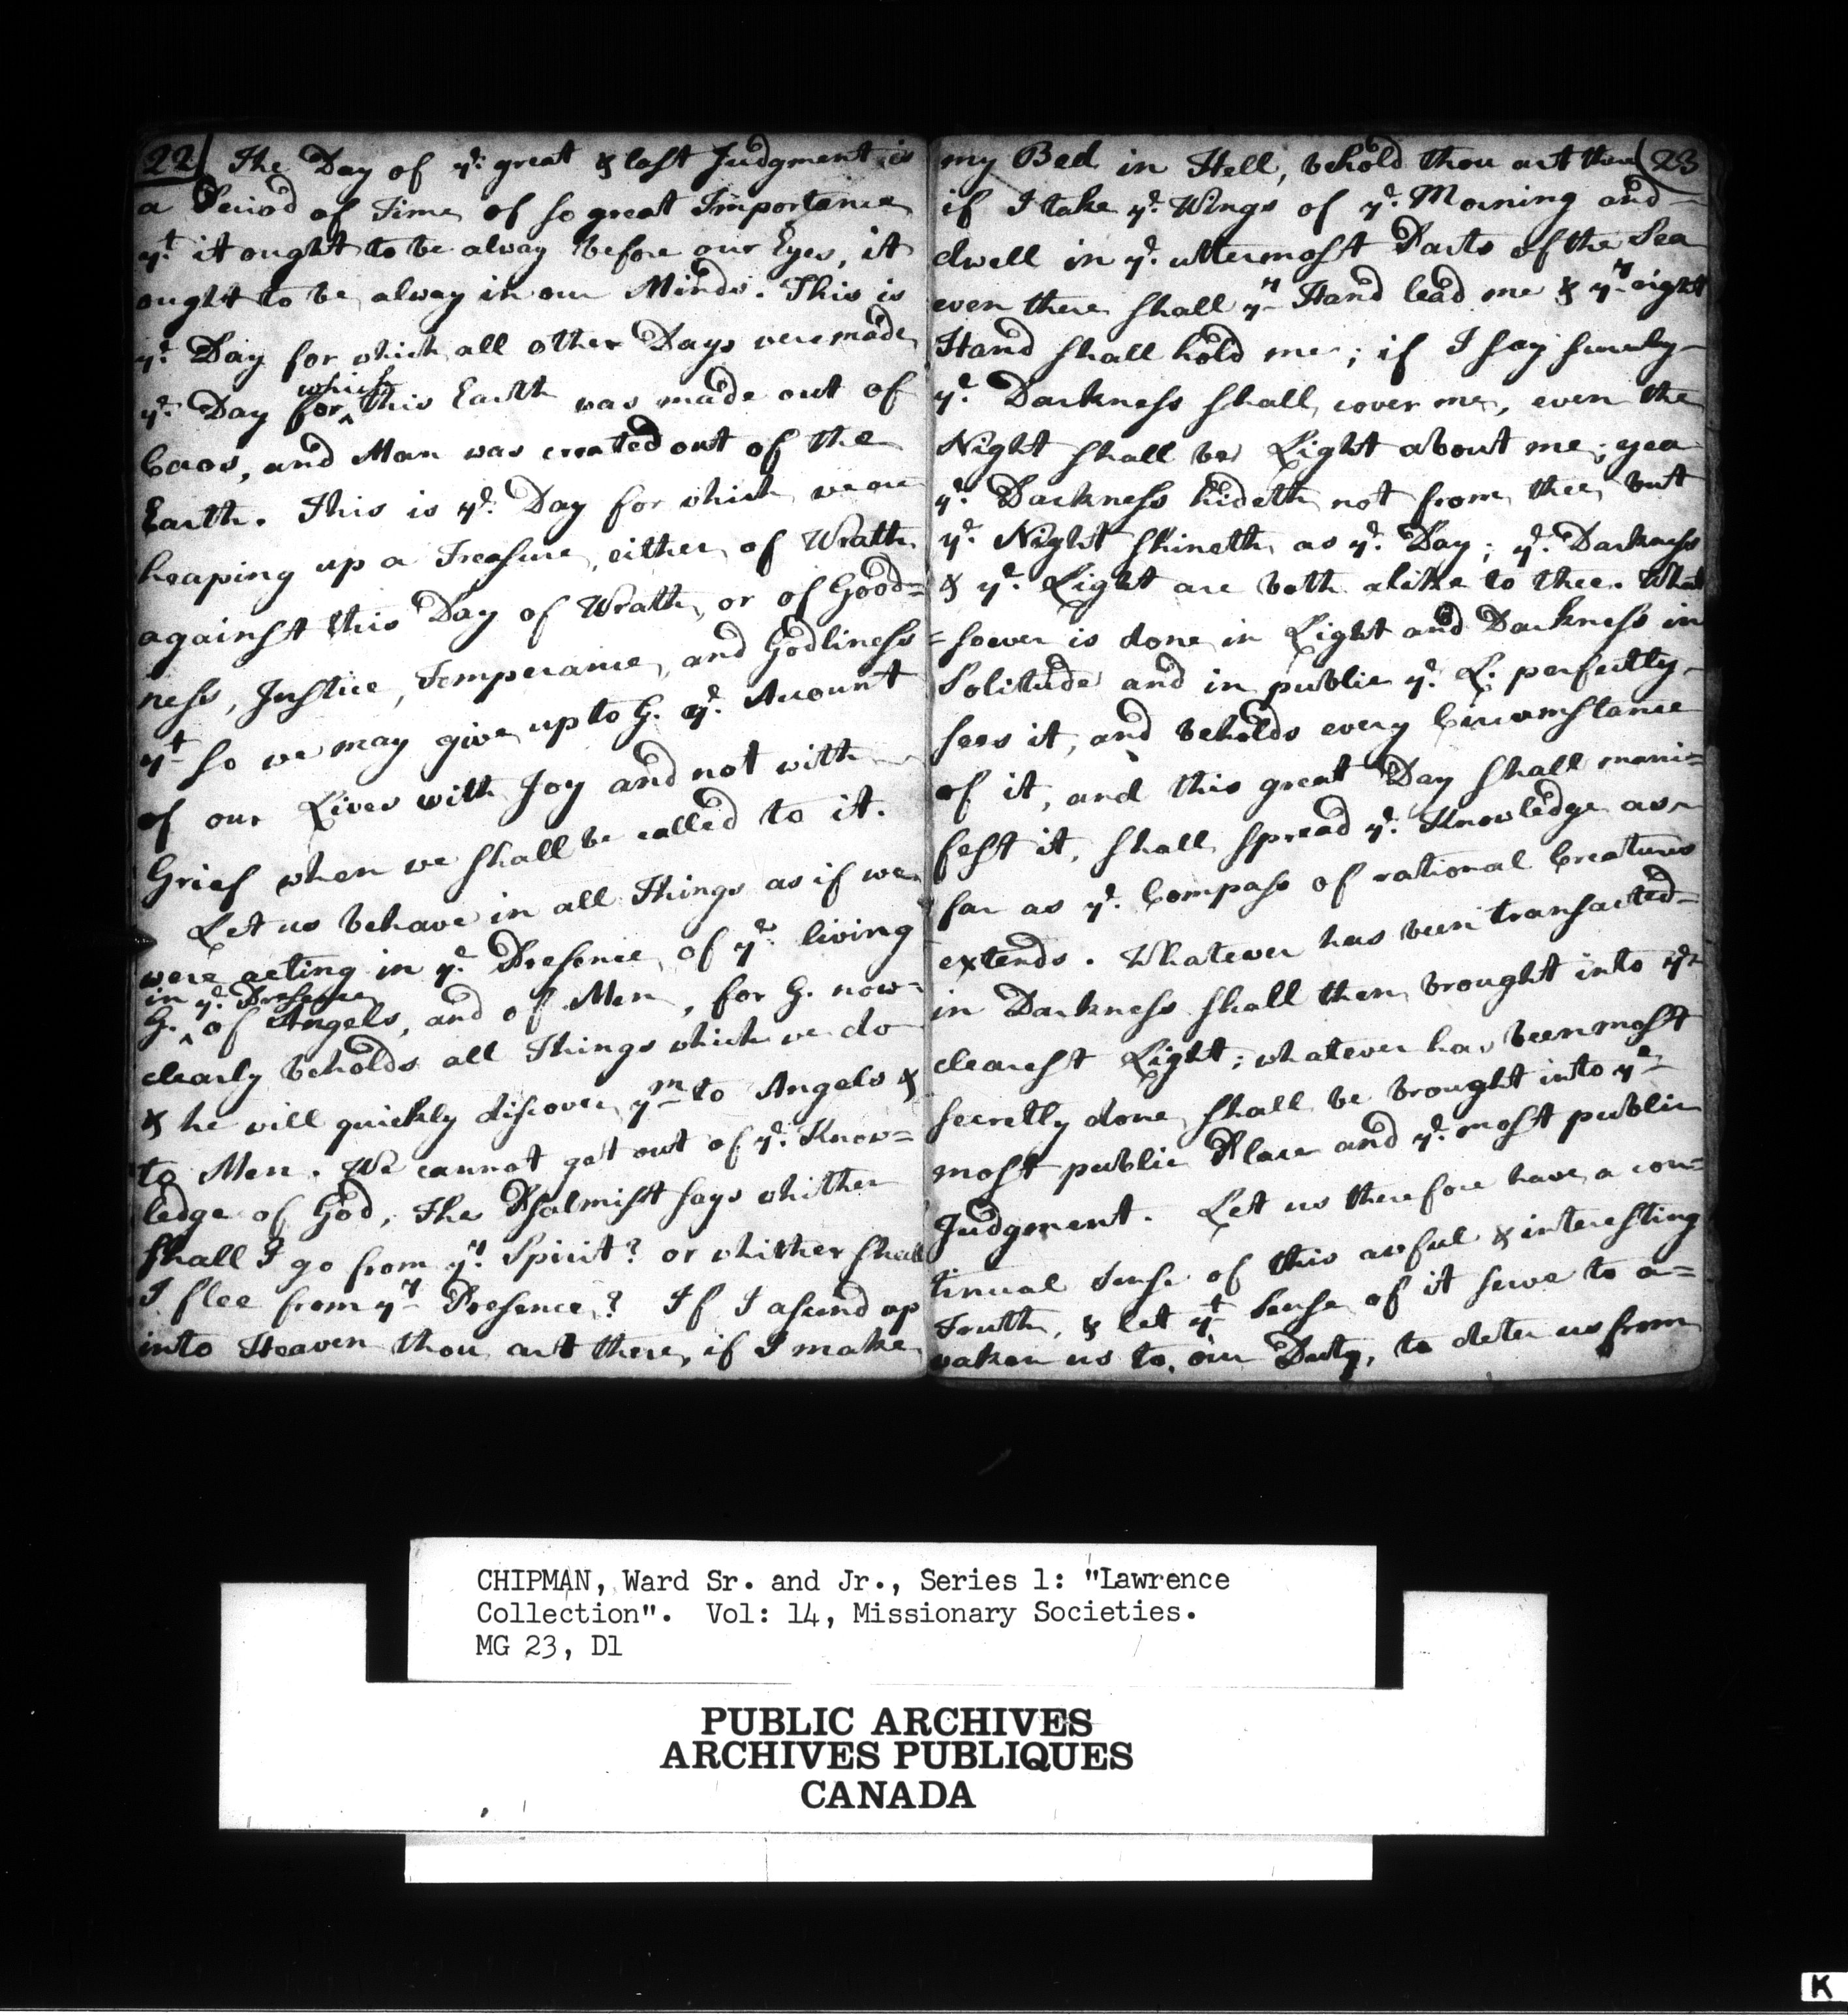 22 The Day of ye. great & last Judgment is
a Period of Time of so great Importance
yt. it ought to be alway before our Eyes, it
ought to be alway in our Minds. This is
ye. Day for which all other Days were made
which
ye. Day for ^ this Earth was made out of
Caos, and Man was created out of the
Earth. This is ye. Day for which we are
heaping up a Treasure, either of Wrath
against this Day of Wrath, or of Good=
ness, Justice, Temperance, and Godliness
yt so we may give up to G. ye. Account
of our Lives with Joy and not with
Grief when we shall be called to it.
Let us behave in all Things as if we
were acting in ye. Presence of ye. living
in ye. Presence
G. ^ of Angels, and of Men, for G. now
clearly beholds all Things which we do
& he will quickly discover ym to Angels &
to Men. We cannot get out of ye. Know=
ledge of God, The Psalmist says whither
shall I go from yy. Spirit? or whither shall
I flee from yy Presence? If I asend up
into Heaven thou art there, if I make
my Bed in Hell, behold thou art there 23
if I take ye. Wings of ye. Morning and
dwell in ye. uttermost Parts of the Sea
even there shall yy Hand lead me & yy right
Hand shall hold me; if I say surely
ye. Darkness shall cover me, even the
Night shall be Light about me; yea
ye. Darkness hideth not from thee, but
ye. Night shineth as ye. Day; ye. Darkness
& ye. Light are both alike to thee. What
=soever is done in Light and Darkness in
Solitude and in public ye. L. perfectly
sees it, and beholds every Circumstance
of it, and this great Day shall mani=
fest it, shall spread ye. Knowledge as
far as ye. Compass of rational Creatures
extends. Whatever has been transacted
in Darkness shall then brought into ye
clearest Light; whatever has been most
secretly done shall be brought into ye
most public Place and ye. most public
Judgment. Let us therefore have a con=
tinual Sense of this awful & interesting
Truth, & let yt Sense of it serve to a=
waken us to our Duty, to deter us from
CHIPMAN, Ward Sr. and Jr., Series 1: "Lawrence
Collection". Vol: 14, Missionary Societies.
MG 23, D1
PUBLIC ARCHIVES
ARCHIVES PUBLIQUES
CANADA
K